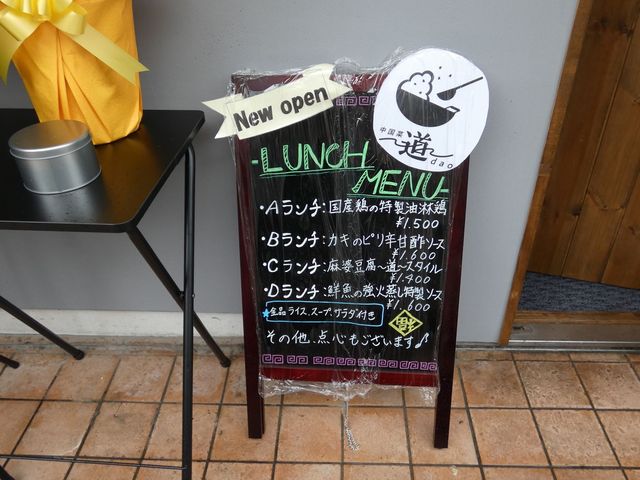 New open
中国菜
道
dao
-LUNCH
MENU-
・Aランチ:国産鶏の特製油淋鶏
¥1.500
・Bランチ:カキのピリ辛甘酢ソース
¥1.600
・Cランチ:麻婆豆腐~道~スタイル
¥1.400
・Dランチ:鮮魚の強火蒸し特製ソース
¥1.600
★全品ライス、スープ、サラダ付き
その他、点心もございます♪